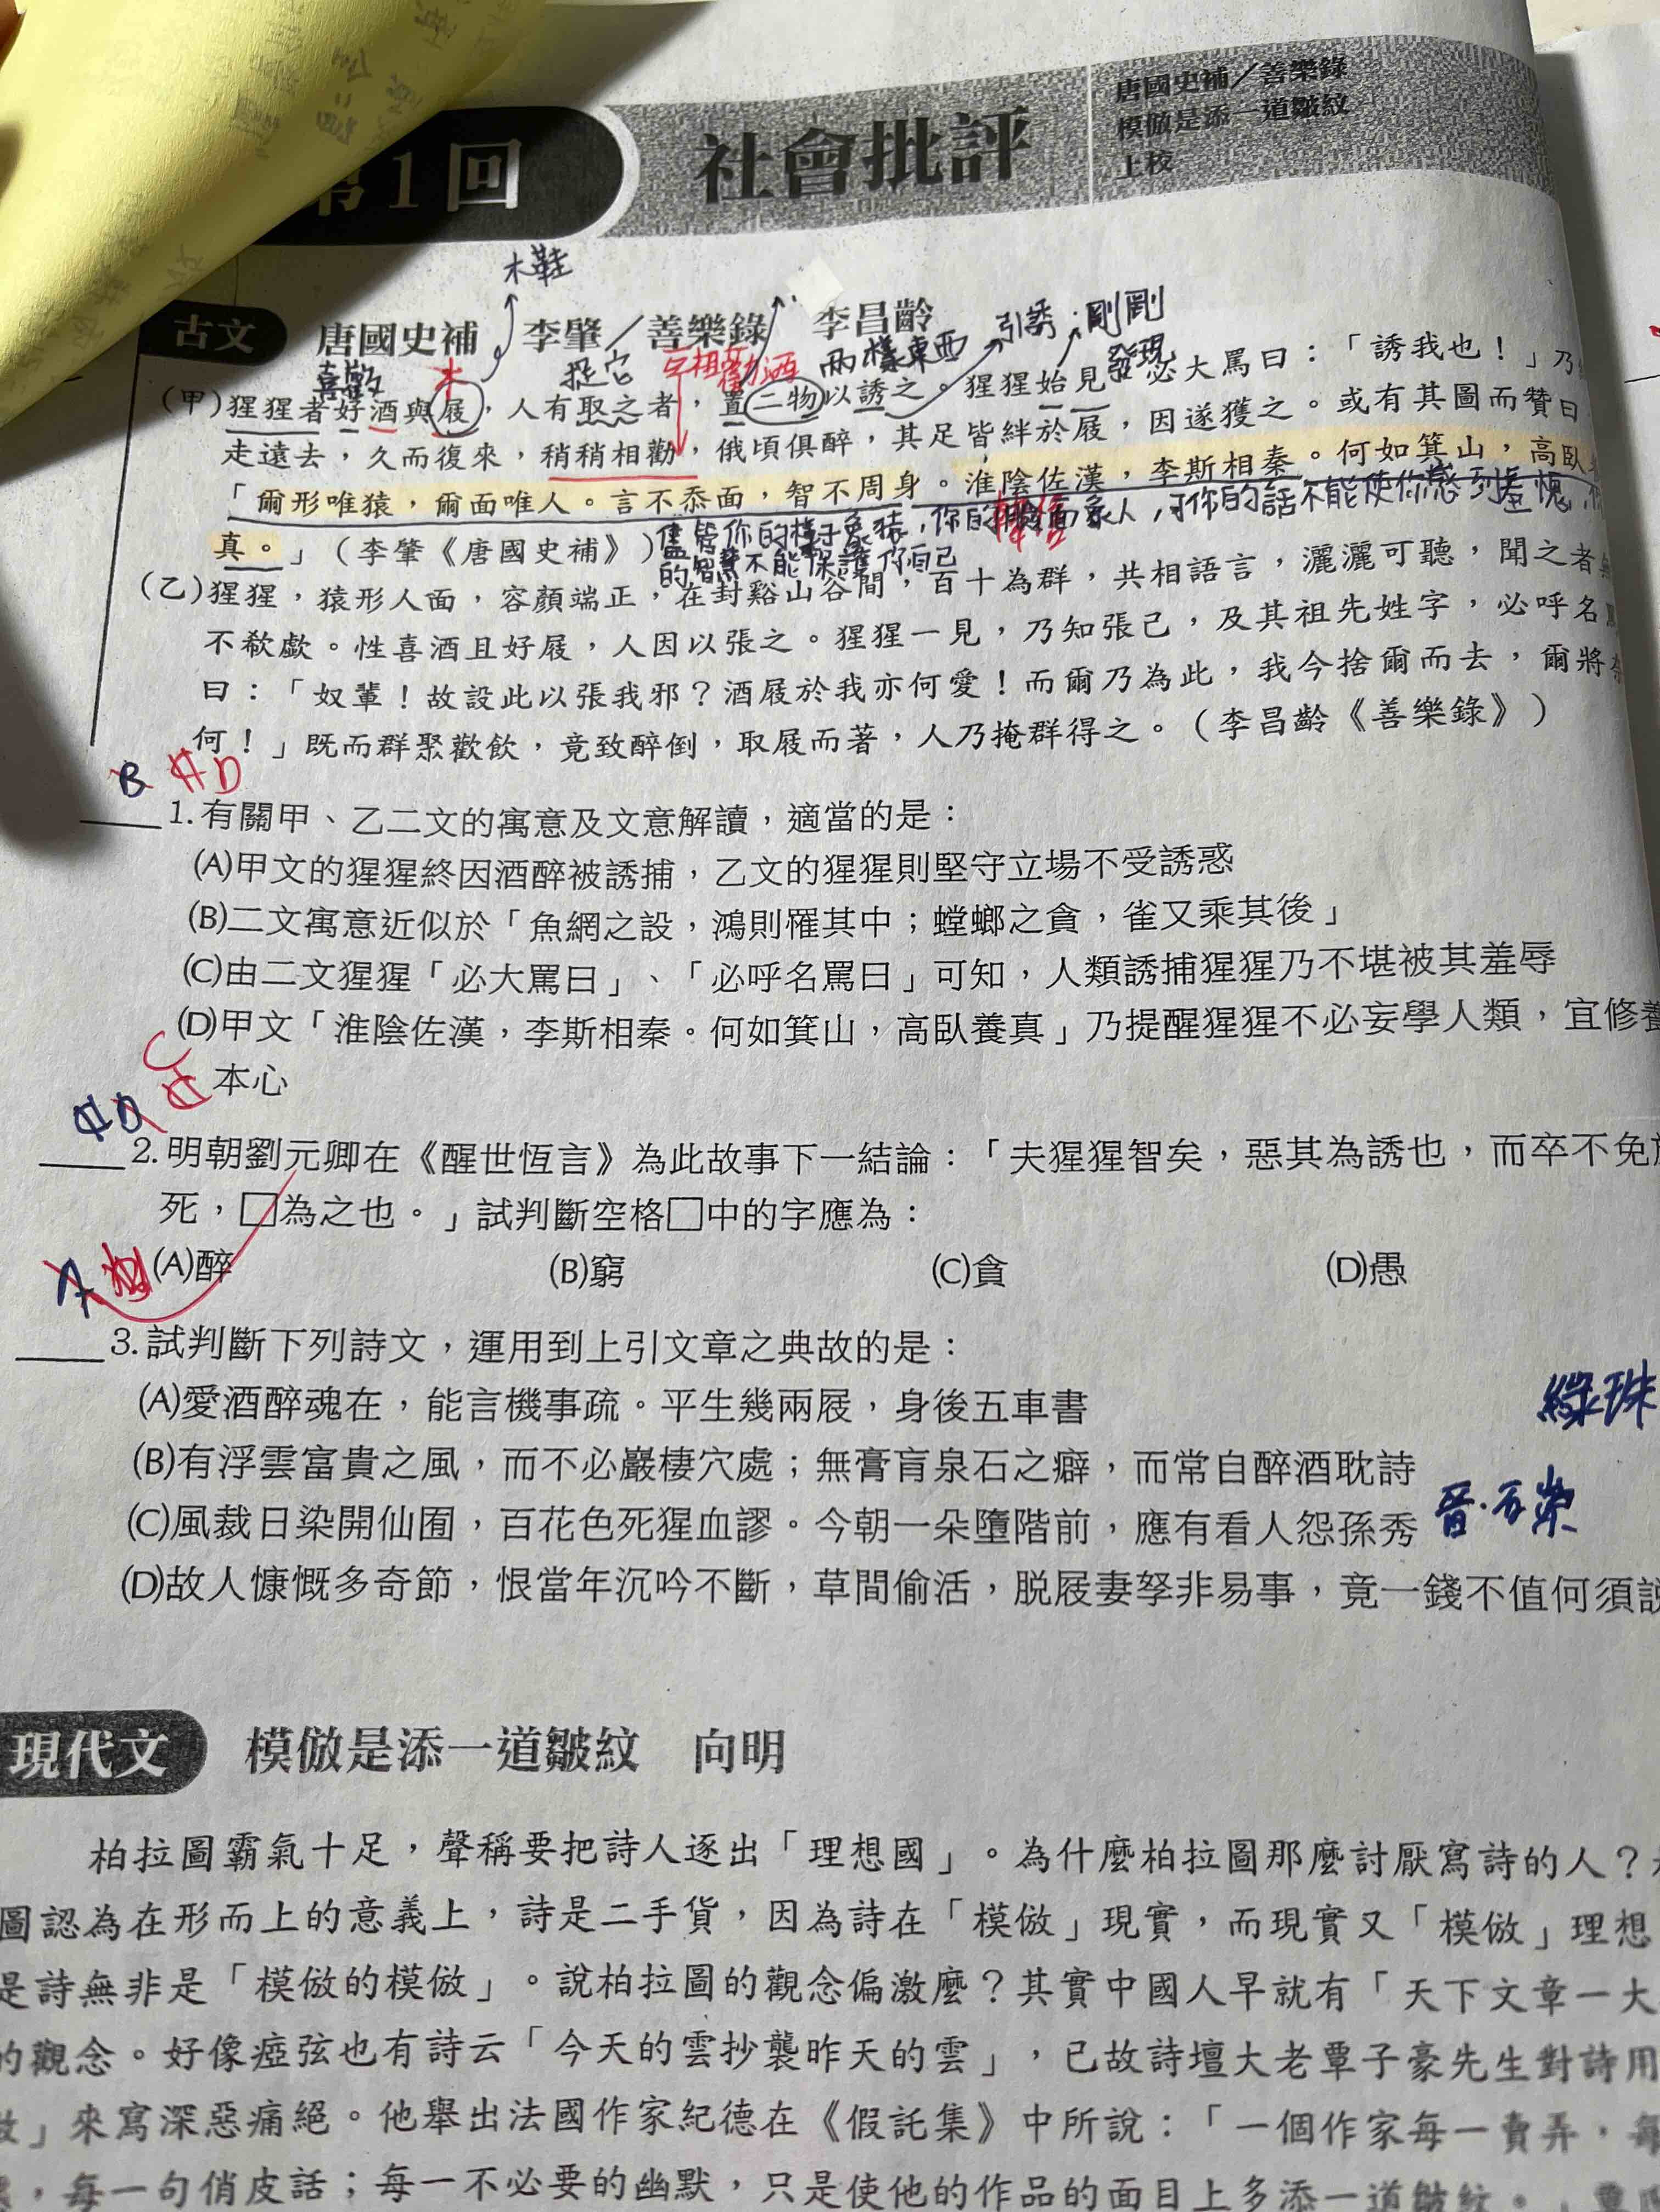 第1回
社會批評
唐國史補／善樂錄
模倣是添一道皺紋
上校
木鞋
古文 唐國史補 李肇／善樂錄 李昌齡
喜歡 木 捉它 勸酒 兩樣東西 引誘 剛剛 發現
(甲)猩猩者好酒與屐，人有取之者，置二物以誘之。猩猩始見，必大罵曰：「誘我也！」乃
走遠去，久而復來，稍稍相勸，俄頃俱醉，其足皆絆於屐，因遂獲之。或有其圖而贊曰
「爾形唯猿，爾面唯人。言不忝面，智不周身。淮陰佐漢，李斯相秦。何如箕山，高臥
韓信
儘管你的樣子象猿，你的臉面象人，可你的話不能使你感到羞愧，
真。」（李肇《唐國史補》）
的智慧不能保護你自己
(乙)猩猩，猿形人面，容顏端正，在封谿山谷間，百十為群，共相語言，灑灑可聽，聞之者
不欷歔。性喜酒且好屐，人因以張之。猩猩一見，乃知張己，及其祖先姓字，必呼名
曰：「奴輩！故設此以張我邪？酒屐於我亦何愛！而爾乃為此，我今捨爾而去，爾將
何！」既而群聚歡飲，竟致醉倒，取屐而著，人乃掩群得之。（李昌齡《善樂錄》）
B D
1.有關甲、乙二文的寓意及文意解讀，適當的是：
(A)甲文的猩猩終因酒醉被誘捕，乙文的猩猩則堅守立場不受誘惑
(B)二文寓意近似於「魚網之設，鴻則罹其中；螳螂之貪，雀又乘其後」
(C)由二文猩猩「必大罵曰」、「必呼名罵曰」可知，人類誘捕猩猩乃不堪被其羞辱
(D)甲文「淮陰佐漢，李斯相秦。何如箕山，高臥養真」乃提醒猩猩不必妄學人類，宜修養
本心
C
D
2.明朝劉元卿在《醒世恆言》為此故事下一結論：「夫猩猩智矣，惡其為誘也，而卒不免於
死，□為之也。」試判斷空格□中的字應為：
(A)醉 (B)窮 (C)貪 (D)愚
A
3.試判斷下列詩文，運用到上引文章之典故的是：
(A)愛酒醉魂在，能言機事疏。平生幾兩屐，身後五車書
綠珠
(B)有浮雲富貴之風，而不必巖棲穴處；無膏肓泉石之癖，而常自醉酒耽詩
(C)風裁日染開仙囿，百花色死猩血謬。今朝一朵墮階前，應有看人怨孫秀
晉·石崇
(D)故人慷慨多奇節，恨當年沉吟不斷，草間偷活，脫屐妻孥非易事，竟一錢不值何須說
現代文 模倣是添一道皺紋 向明
柏拉圖霸氣十足，聲稱要把詩人逐出「理想國」。為什麼柏拉圖那麼討厭寫詩的人？
圖認為在形而上的意義上，詩是二手貨，因為詩在「模倣」現實，而現實又「模倣」理想
是詩無非是「模倣的模倣」。說柏拉圖的觀念偏激麼？其實中國人早就有「天下文章一大
的觀念。好像瘂弦也有詩云「今天的雲抄襲昨天的雲」，已故詩壇大老覃子豪先生對詩用
倣」來寫深惡痛絕。他舉出法國作家紀德在《假託集》中所說：「一個作家每一賣弄，每
，每一句俏皮話；每一不必要的幽默，只是使他的作品的面目上多添一道皺紋。」